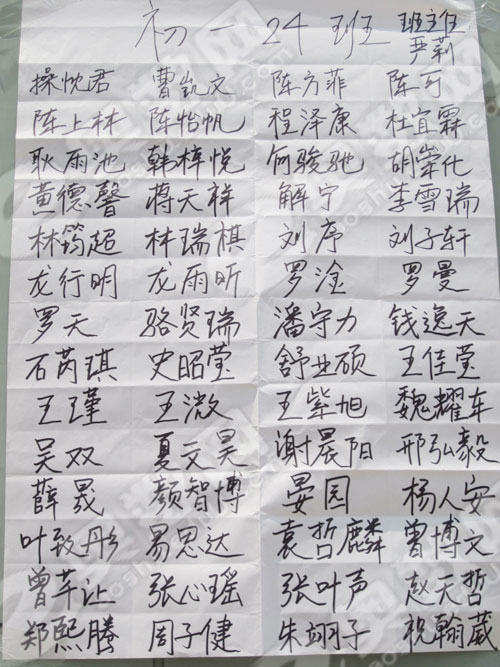 初一24班 班主任
严莉
操忱君 曹凯文 陈方菲 陈可
陈上林 陈怡帆 程泽康 杜宜霖
耿雨池 韩梓悦 何骏驰 胡崇化
黄德馨 蒋天祥 解宁 李雪瑞
林筠超 林瑞棋 刘序 刘子轩
龙行明 龙雨昕 罗淦 罗曼
罗天 骆贤瑞 潘守力 钱逸天
石芮琪 史昭莹 舒业硕 王佳莹
王瑾 王溦 王紫旭 魏耀车
吴双 夏文昊 谢晨阳 邢弘毅
薛晟 颜智博 晏园 杨人安
叶致彤 易思达 袁哲麟 曾博文
曾芊让 张心瑶 张叶声 赵天哲
郑熙腾 周子健 朱翊子 祝翰葳